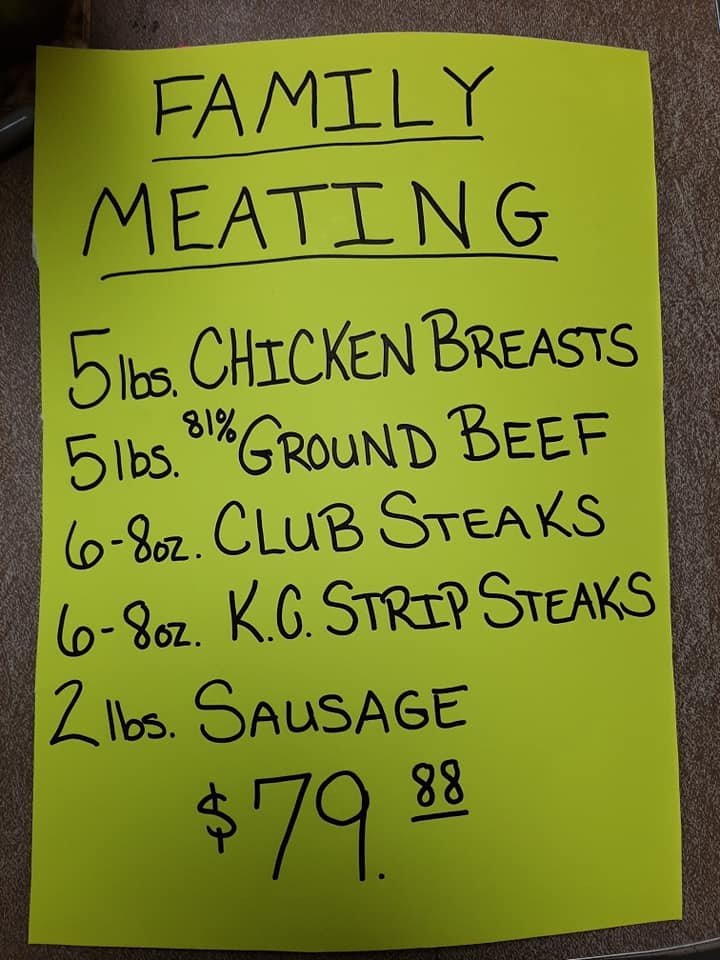 FAMILY
MEATING
5 lbs. CHICKEN BREASTS
5 lbs. 81% GROUND BEEF
6-8oz. CLUB STEAKS
6-8oz. K.C. STRIP STEAKS
2 lbs. SAUSAGE
$79.88